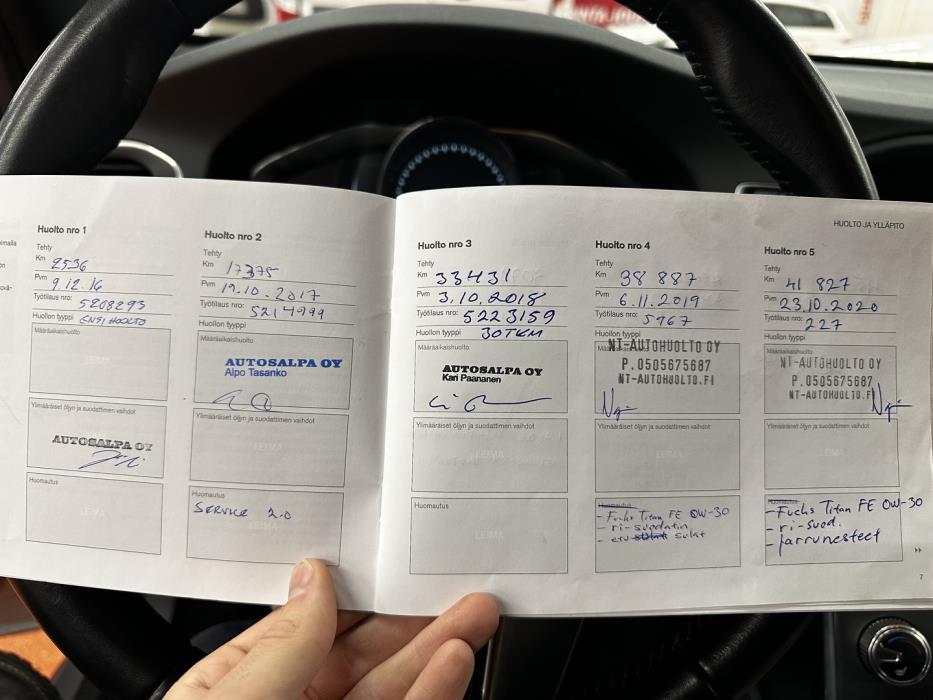 HUOLTO JA YLLÄPITO
Huolto nro 1
Tehty
Km 2536
Pvm 9.12.16
Työtilaus nro: 5208293
Huollon tyyppi ENSIHUOLTO
Määräaikaishuolto
LEIMA
Ylimääräiset öljyn ja suodattimen vaihdot
AUTOSALPA OY
Huomautus
LEIMA
Huolto nro 2
Tehty
Km 17375
Pvm 19.10.2017
Työtilaus nro: 5214999
Huollon tyyppi
Määräaikaishuolto
AUTOSALPA OY
Alpo Tasanko
Ylimääräiset öljyn ja suodattimen vaihdot
LEIMA
Huomautus
SERVICE 2.0
LEIMA
Huolto nro 3
Tehty
Km 33431
Pvm 3.10.2018
Työtilaus nro: 5223159
Huollon tyyppi 30TKM
Määräaikaishuolto
AUTOSALPA OY
Kari Paananen
Ylimääräiset öljyn ja suodattimen vaihdot
LEIMA
Huomautus
LEIMA
Huolto nro 4
Tehty
Km 38 887
Pvm 6.11.2019
Työtilaus nro: 5967
Huollon tyyppi
NT-AUTOHUOLTO OY
P.0505675687
NT-AUTOHUOLTO.FI
Ylimääräiset öljyn ja suodattimen vaihdot
LEIMA
Huomautus
- Fuchs Titan FE 0W-30
- ri-suodatin
- etu sulat
LEIMA
Huolto nro 5
Tehty
Km 41 827
Pvm 23.10.2020
Työtilaus nro: 227
Huollon tyyppi
Määräaikaishuolto
NT-AUTOHUOLTO OY
P.0505675687
NT-AUTOHUOLTO.FI
Ylimääräiset öljyn ja suodattimen vaihdot
LEIMA
Huomautus
- Fuchs Titan FE 0W-30
- ri-suod.
- Jarrunesteet
7